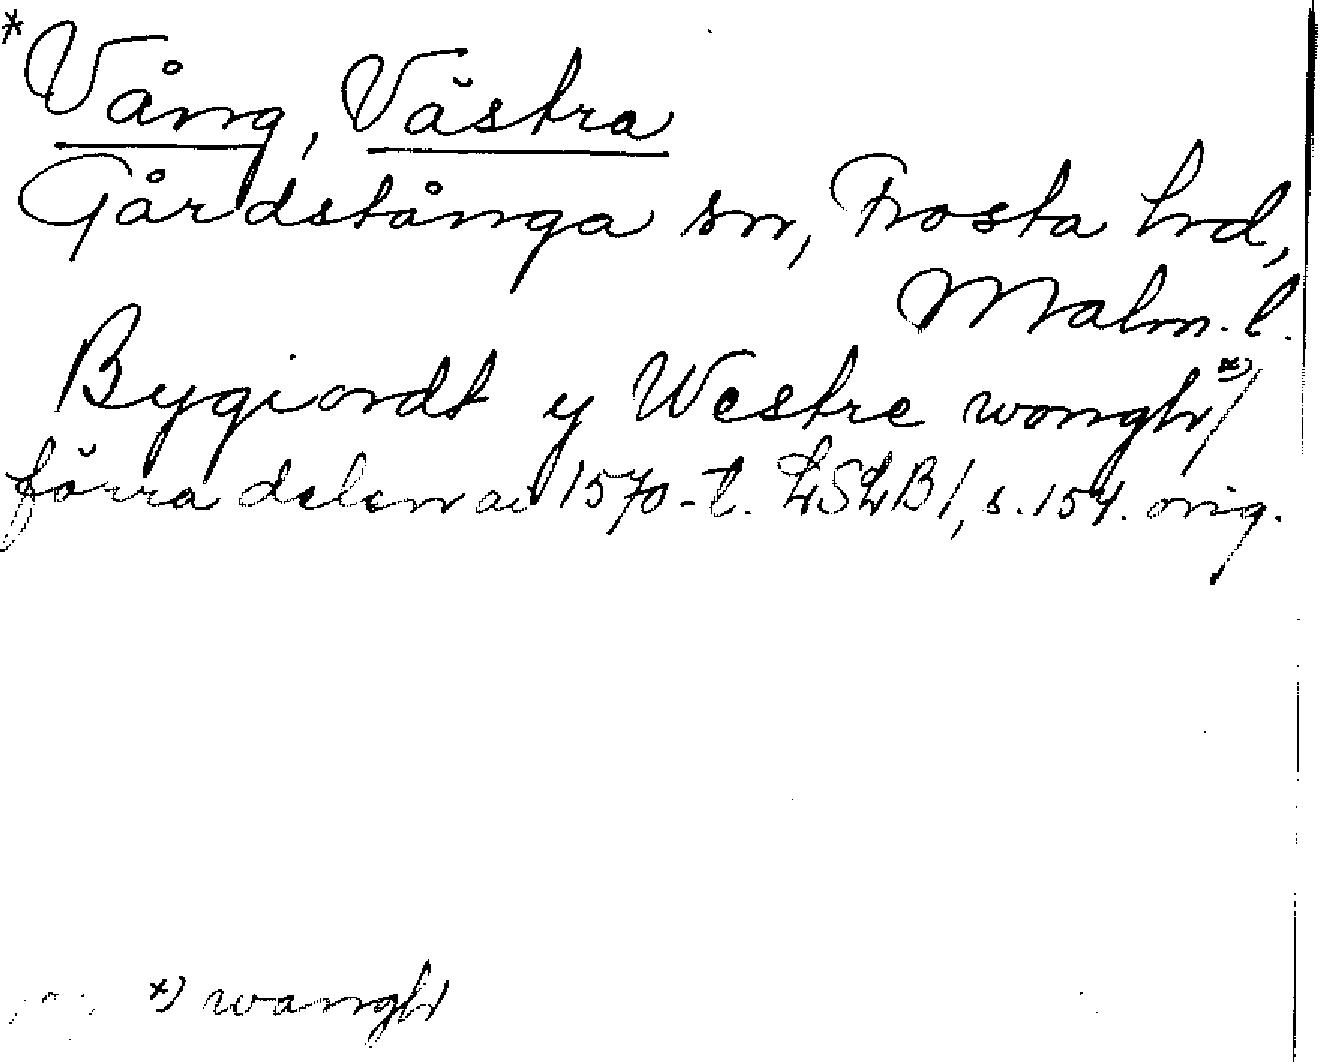 *Vång, Västra
Gårdstånga sn, Frosta hd,
Malm. l.
Bygiordt y Westre wongh *)/
förra delen av 1570-t. LSLB1, s. 154. orig.
*) wangh